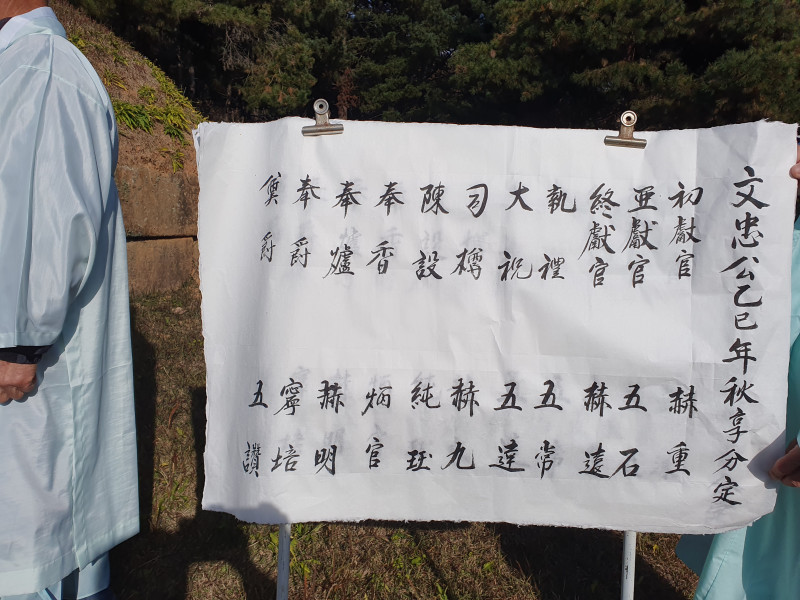 文忠公乙巳年秋享分定
初獻官 赫重
亞獻官 五石
終獻官 赫遠
執禮 五常
大祝 五達
司樽 赫九
陳設 純珏
奉香 炳官
奉爐 赫明
奉爵 寧培
奠爵 五讚